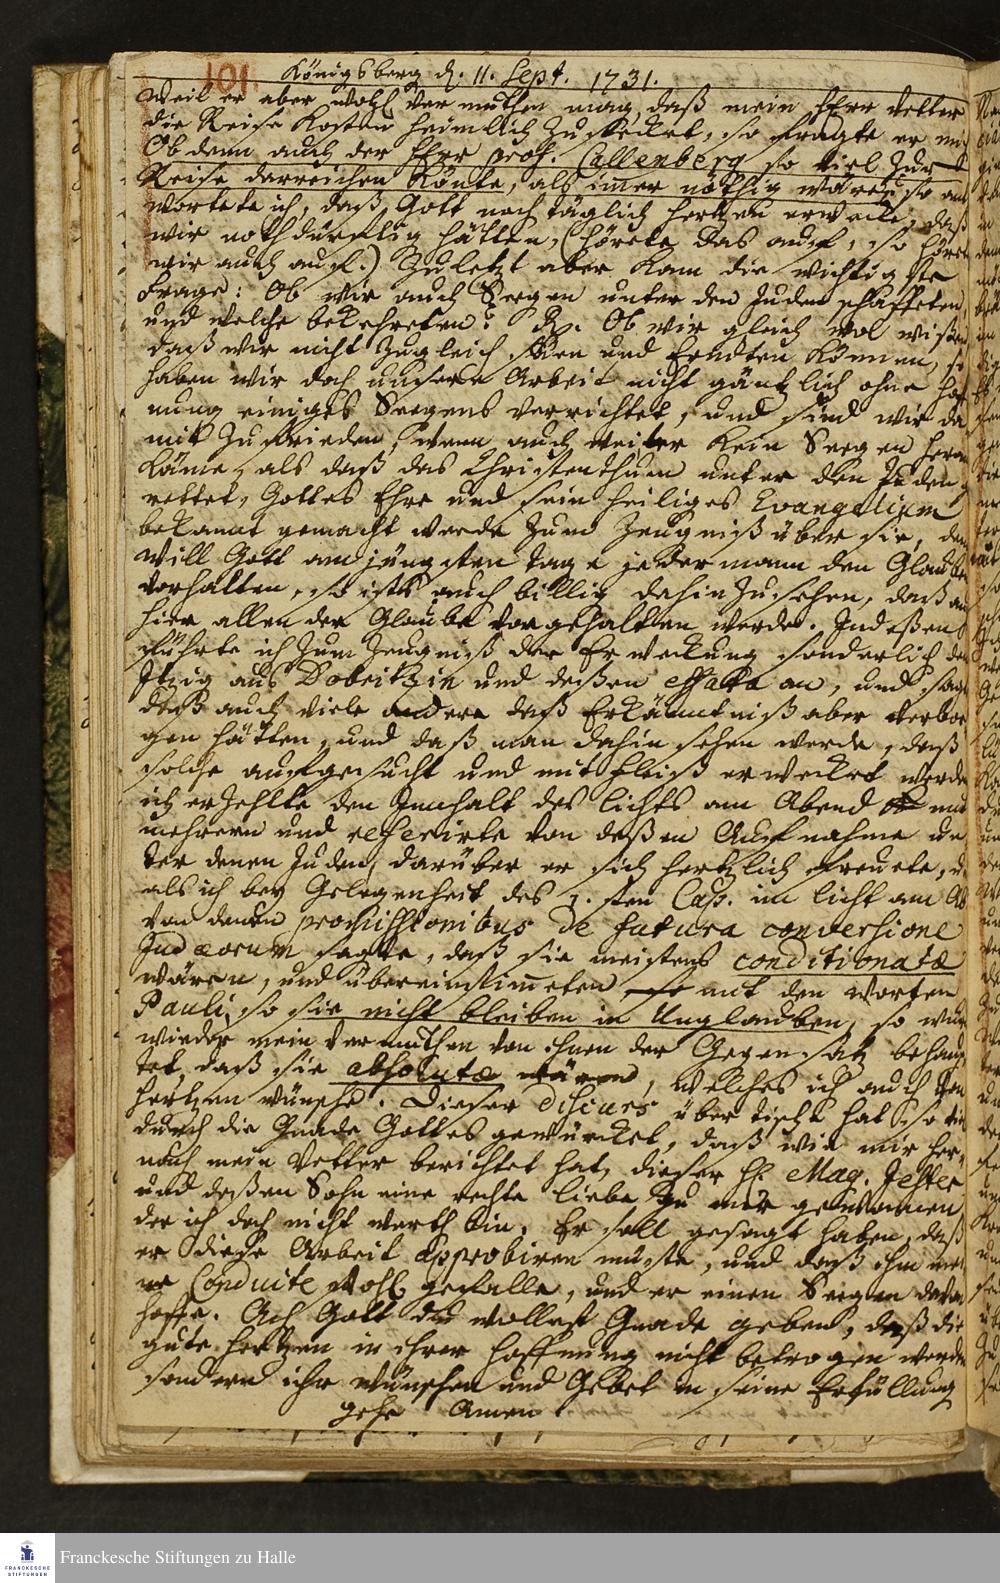 101. Königsberg d. 11. Sept. 1731.
Weil er aber wohl vermuthen mag, daß mein Herr Vetter
die Reise Kosten heimlich zustecket, so fragte er mich
Ob denn auch der Herr prof. Callenberg so viel zur
Reise darreichen könte, als immer nöthig wäre, so ant
wortete ich, daß Gott noch täglich hertzen erweckte, daß
wir nothdürfftig hätten, (hörete das auf, so höret
wir auch auf.) Zuletzt aber kam die wichtigste
Frage: Ob wir auch Seegen unter den Juden schaffeten
und welche bekehreten? R. Ob wir gleich wol wißen
daß wir nicht zugleich säen und Erndten können, so
haben wir doch unsere Arbeit nicht gäntzlich ohne hof
nung einiges Seegens verrichtet, und sind wir da
mit zufrieden, wenn auch weiter kein Seegen heraus
käme, als daß das Christenthum unter den Juden ge
rettet, Gottes Ehre und sein heiliges Evangelium
bekannt gemacht werde zum Zeugniß über sie, denn
will Gott am jüngsten tage jedermann den Glauben
vorhalten, so ists auch billig dahin zusehen, daß auch
hier allen der Glaube vorgehalten werde. Indeßen
führte ich zum Zeugniß der Erweckung sonderlich den
Itzig aus Dobritzin und deßen an, und sagte
daß auch viele andere daß Erkänntniß aber verbor
gen hätten, und daß man dahin sehen werde, daß
solche aufgesucht und mit fleiß erwecket werden
ich erzehlte den Innhalt des lichts am Abend mit
mehrern und referirte von deßen Aufnahme un
ter denen Juden, darüber er sich hertzlich freuete, u.
als ich bey Gelegenheit des Cap. im licht am Ab
von denen promissionibus de futura conversione
Judæorum sagte, daß sie meistens conditionatæ
wären, und übereinstimmeten mit den worten
Pauli, so sie nicht bleiben in Unglauben, so wur
wieder mein vermuthen von ihnen der Gegensatz behaup
tet, daß sie absolutæ wären, welches ich auch von
hertzen wünsche. Dieser discurs über tische hat so viel
durch die Gnade Gottes gewürcket, daß wie mir her
nach mein Vetter berichtet hat, dieser H. Mag. Jester
und deßen Sohn eine rechte liebe zu mir genommen
der ich doch nicht werth bin. Er soll gesagt haben, daß
er diese Arbeit approbiren müste, und daß ihm mei
ne Conduite wohl gefalle, und er einen Seegen davon
hoffe. Ach Gott du wollest Gnade geben, daß die
gute hertzen in ihrer hoffnung nicht betrogen werden
sondern ihr wünschen und Gebet in seine Erfüllung
gehe Amen!
Franckesche Stiftungen zu Halle
FRANCKESCHE
STIFTUNGEN